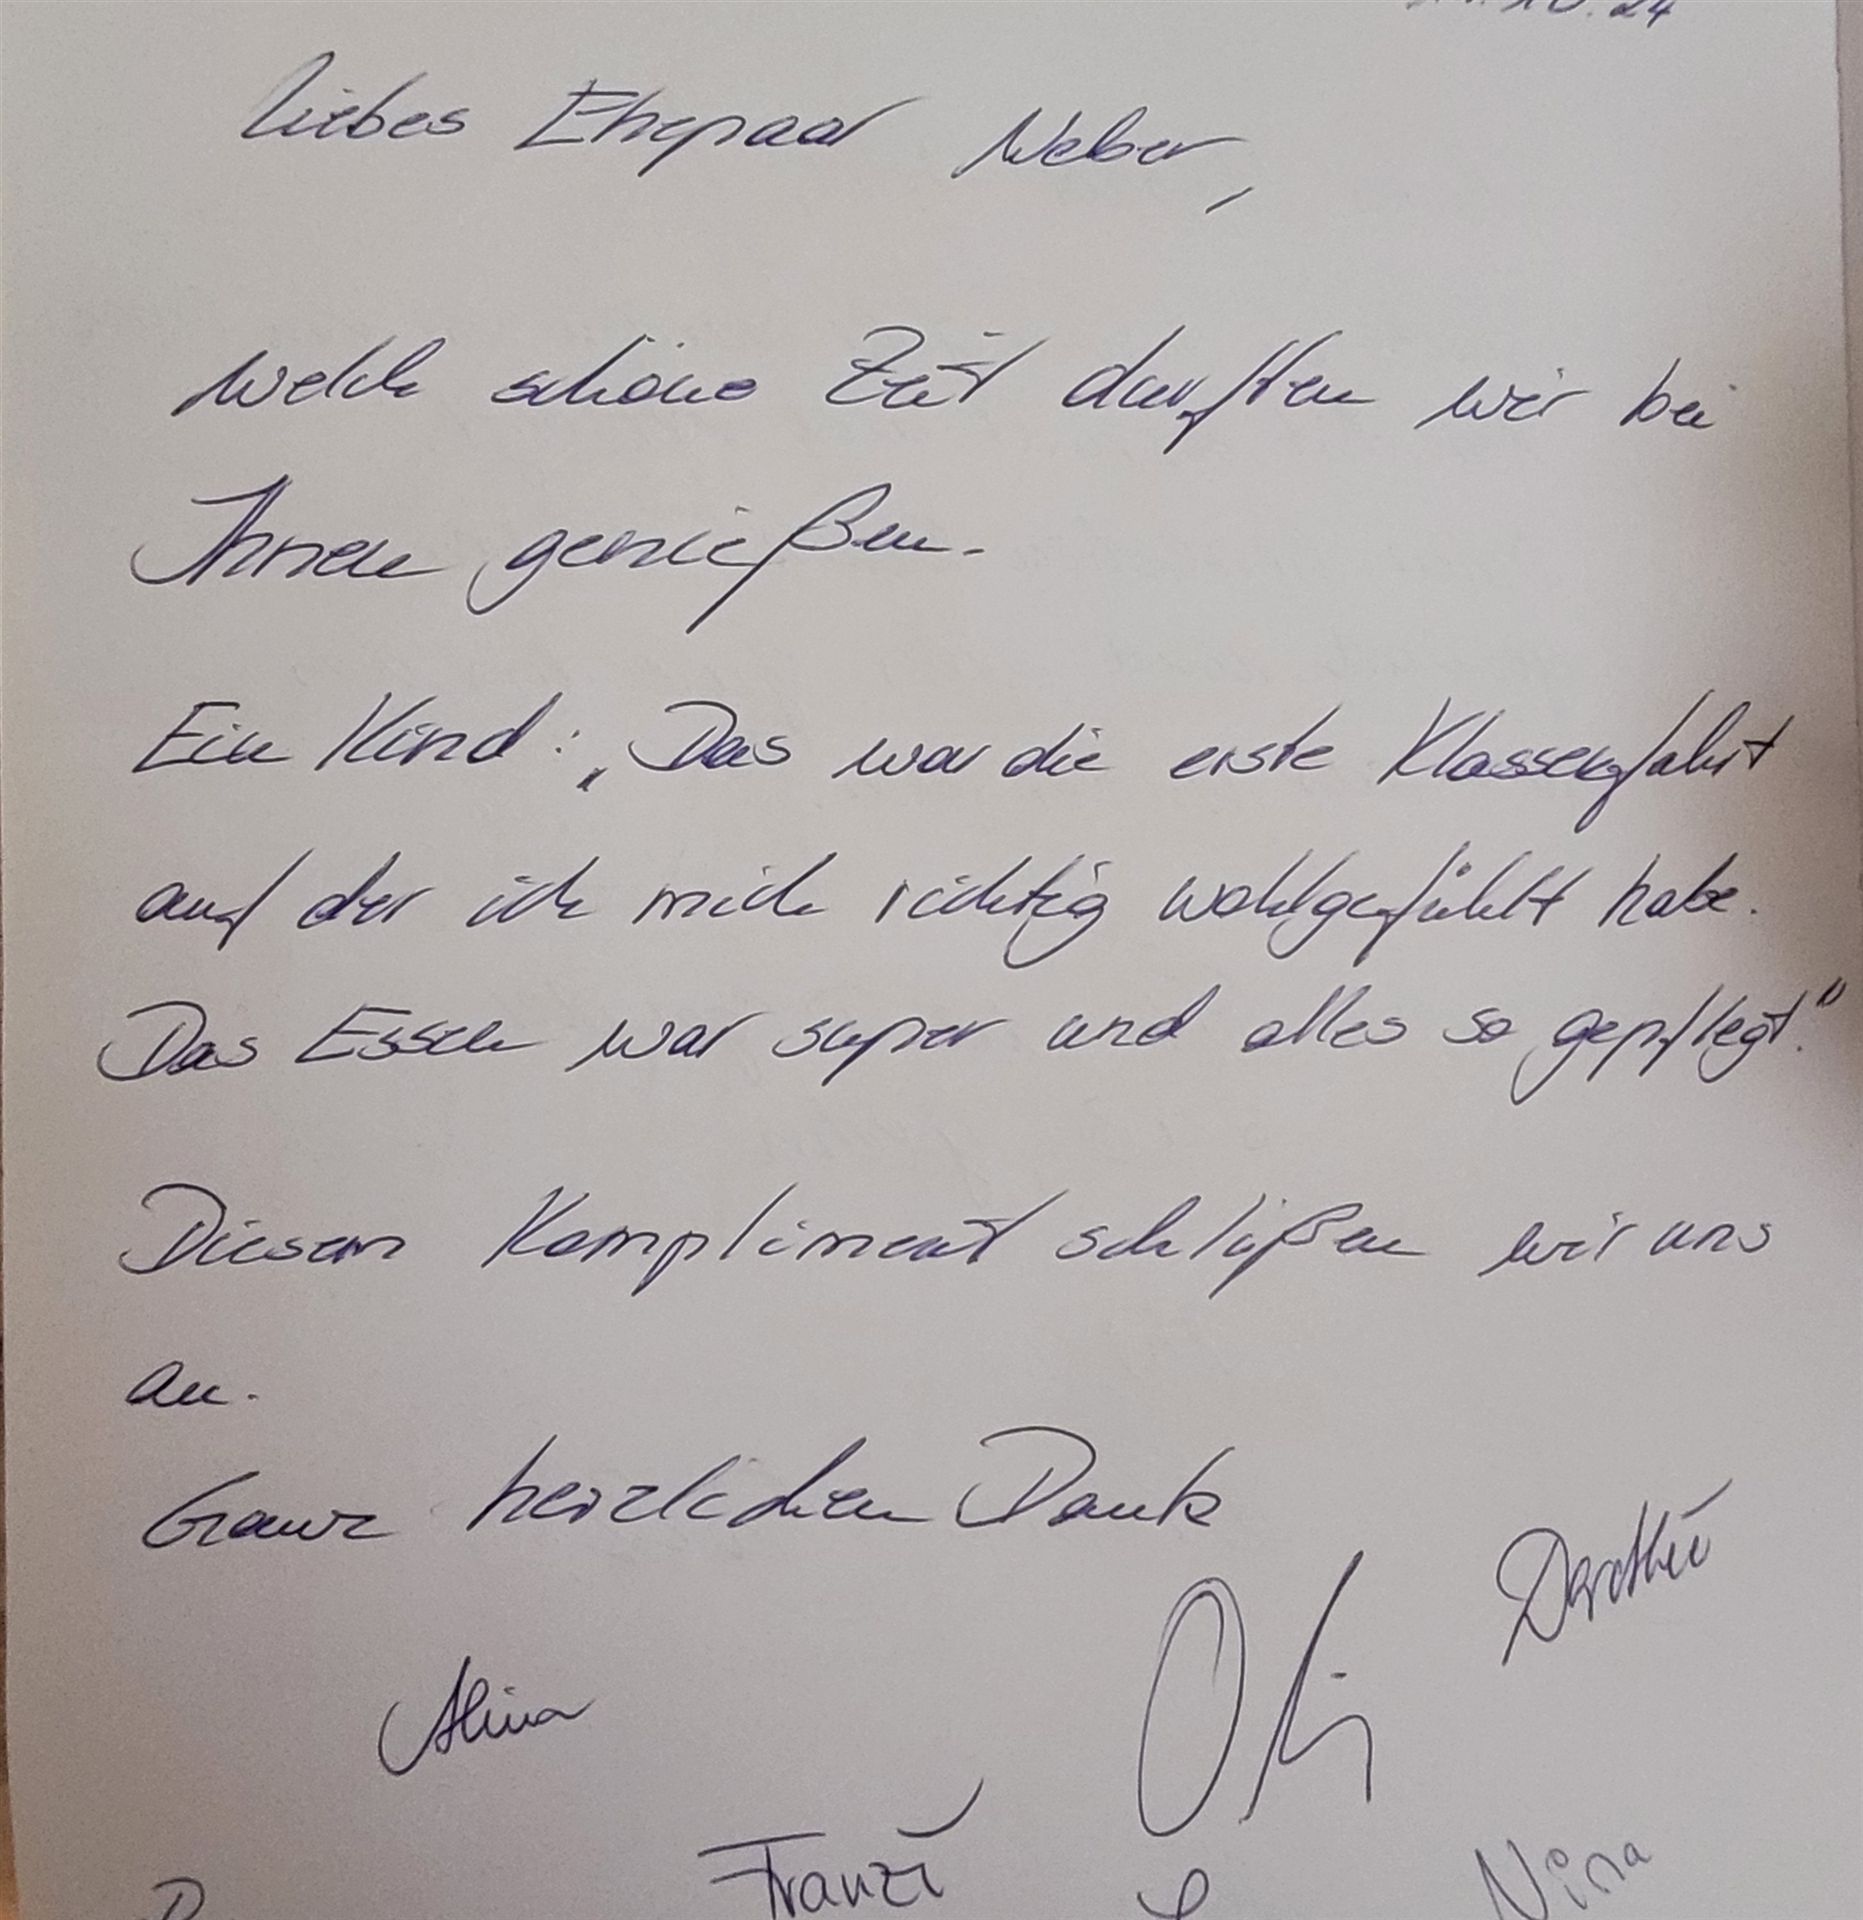 10.24
Liebes Ehepaar Weber,
welch schöne Zeit durften wir bei
Ihnen genießen.
Ein Kind: „Das war die erste Klassenfahrt
auf der ich mich richtig wohlgefühlt habe.
Das Essen war super und alles so gepflegt."
Diesem Kompliment schlißen wir uns
an.
Ganz herzlichen Dank
Dorothee
Alina
Franzi
Nina